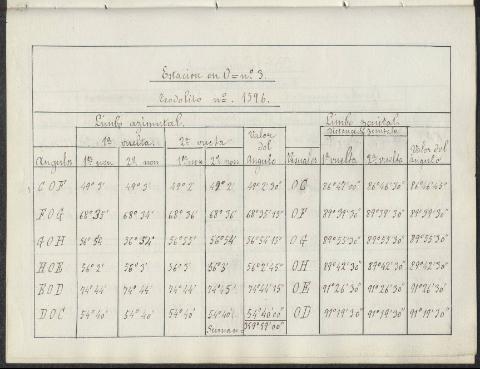 Estacion en O = nº 3.
Teodolito nº. 1596.
Limbo azimutal. Limbo zenital.
Distancias Zenitales
1ª vuelta. 2ª vuelta Valor del Angulo
Angulos 1er non 2º non 1er non 2º non Visuales 1ª vuelta 2ª vuelta Valor del Angulo
C O F 49° 3' 49° 3' 49° 2' 49° 2' 49° 2' 30" O C 86° 47' 00" 86° 46' 30" 86° 46' 45"
F O G 68° 35' 68° 34' 68° 36' 68° 36' 68° 35' 15" O F 89° 39' 30" 89° 39' 30" 89° 39' 30"
G O H 56° 54' 56° 54' 56° 55' 56° 54' 56° 54' 15" O G 89° 55' 30" 89° 55' 30" 89° 55' 30"
H O E 56° 2' 56° 3' 56° 3' 56° 3' 56° 2' 45" O H 89° 42' 30" 89° 42' 30" 89° 42' 30"
E O D 74° 44' 74° 44' 74° 44' 74° 45' 74° 44' 15" O E 91° 26' 30" 91° 26' 30" 91° 26' 30"
D O C 54° 40' 54° 40' 54° 40' 54° 40' 54° 40' 00" O D 91° 19' 30" 91° 19' 30" 91° 19' 30"
Suman 359° 59' 00"